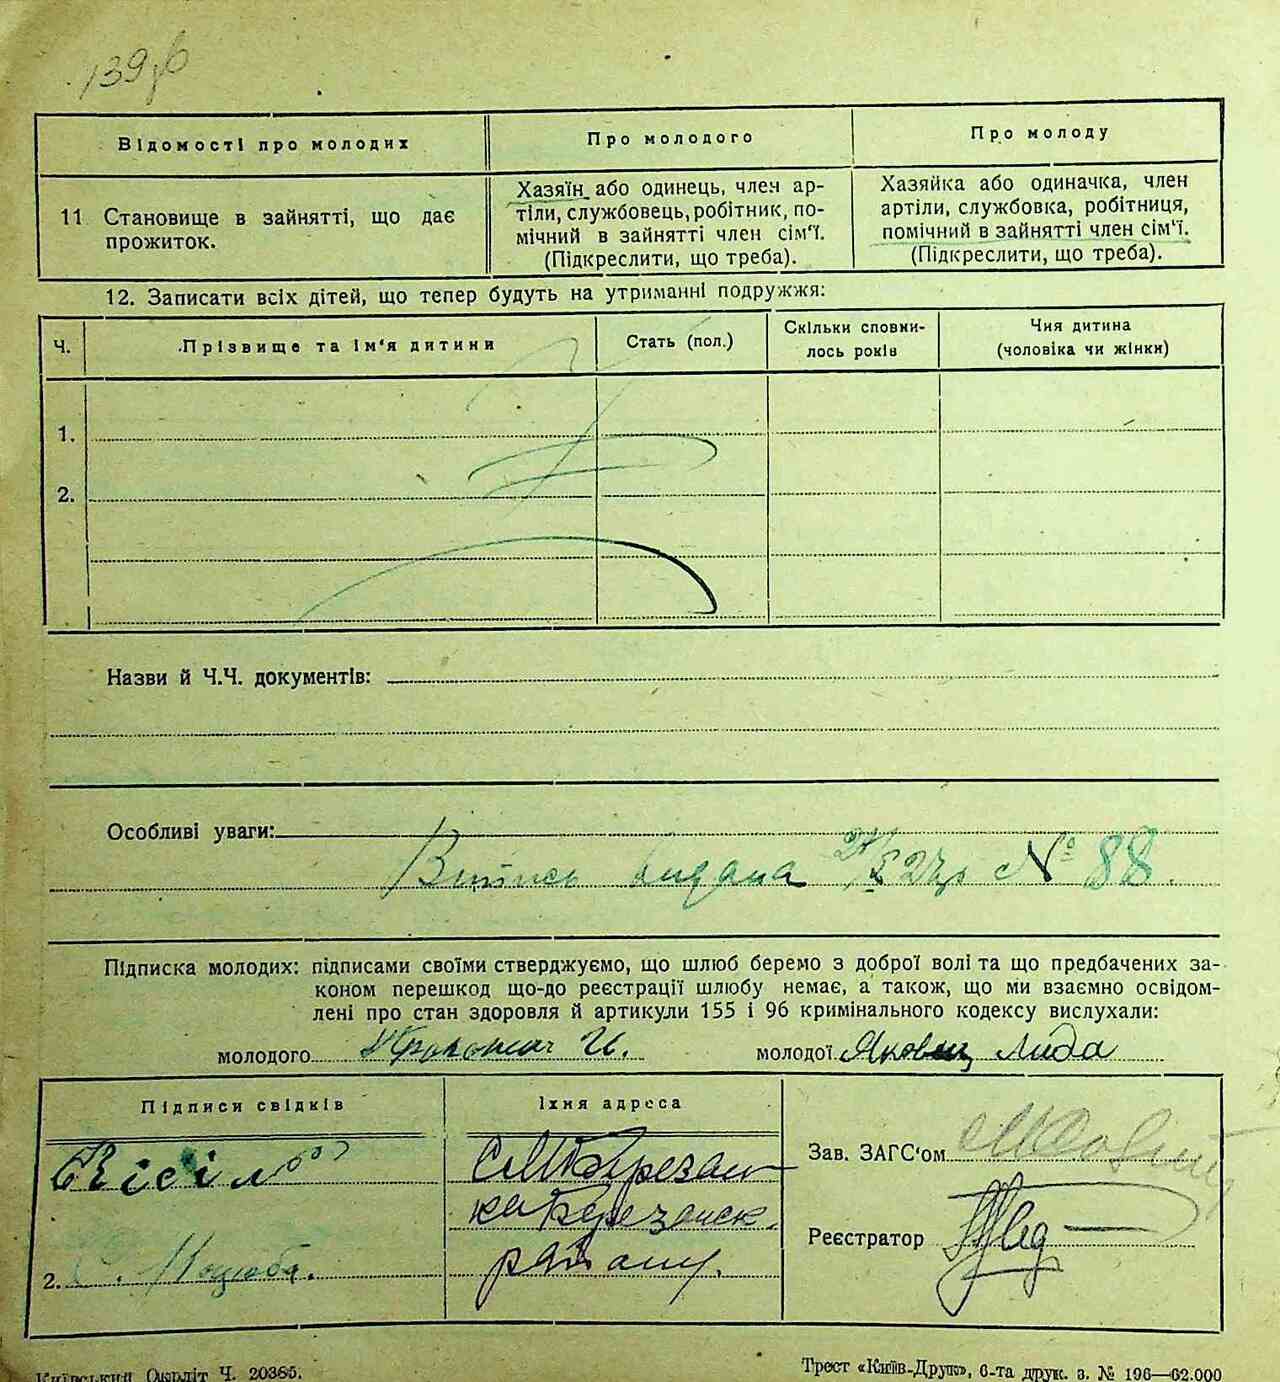 Відомості про молодих
Про молодого
Про молоду
11 Становище в зайнятті, що дає
прожиток.
Хазяїн або одинець, член ар-
тіли, службовець, робітник, по-
мічний в зайнятті член сім'ї.
(Підкреслити, що треба).
Хазяйка або одиначка, член
артіли, службовка, робітниця,
помічний в зайнятті член сім'ї.
(Підкреслити, що треба).
12. Записати всіх дітей, що тепер будуть на утриманні подружжя:
Ч.
Прізвище та ім'я дитини
Стать (пол.)
Скільки сповни-
лось років
Чия дитина
(чоловіка чи жінки)
1.
2.
Назви й Ч.Ч. документів:
Особливі уваги:
видана № 88
Підписка молодих: підписами своїми стверджуємо, що шлюб беремо з доброї волі та що предбачених за-
коном перешкод що-до реєстрації шлюбу немає, а також, що ми взаємно освідом-
лені про стан здоровля й артикули 155 і 96 кримінального кодексу вислухали:
молодого
молодої Лида
Підписи свідків
Їхня адреса
Зав. ЗАГС'ом
Реєстратор
2.
району.
Київський Окрліт Ч. 20385.
Трест «Київ-Друк», 6-та друк. з. № 196—62.000